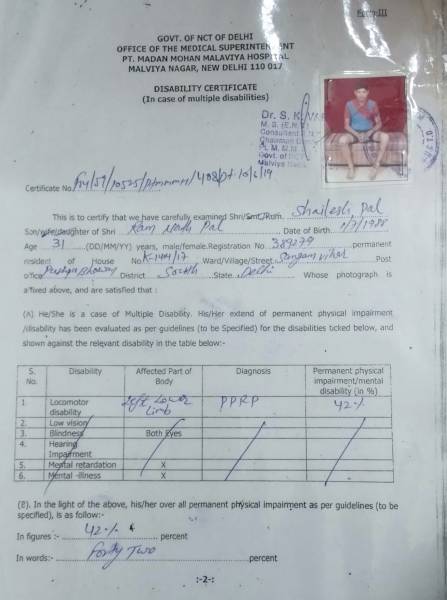 Form-III
GOVT. OF NCT OF DELHI
OFFICE OF THE MEDICAL SUPERINTENDENT
PT. MADAN MOHAN MALAVIYA HOSPITAL
MALVIYA NAGAR, NEW DELHI 110 017
DISABILITY CERTIFICATE
(In case of multiple disabilities)
Dr. S. K.
M. S. (E.N.T)
Consultant
Chairman
Pt. M. M. M.
Govt. of NCT
Malviya Nagar
Certificate No.
This is to certify that we have carefully examined Shri/Smt./Kum. Shailesh Pal
Son/wife/daughter of Shri Ram Nath Pal Date of Birth 1/7/1988
Age 31 (DD/MM/YY) years, male/female.Registration No. 389279 permanent
resident of House No. K-1404/17 Ward/Village/Street Sangam vihar Post
office Pushpa Bhawan District South State Delhi Whose photograph is
affixed above, and are satisfied that :
(A) He/She is a case of Multiple Disability. His/Her extend of permanent physical impairment
/disability has been evaluated as per guidelines (to be Specified) for the disabilities ticked below, and
shown against the relevant disability in the table below:-
S. No. Disability Affected Part of Body Diagnosis Permanent physical impairment/mental disability (in %)
1. Locomotor disability Left Lower Limb PPRP 42%
2. Low vision
3. Blindness Both Eyes
4. Hearing Impairment
5. Mental retardation X
6. Mental -illness X
(B). In the light of the above, his/her over all permanent physical impairment as per guidelines (to be
specified), is as follow:-
In figures :- 42% percent
In words:- Forty Two percent
:-2-: